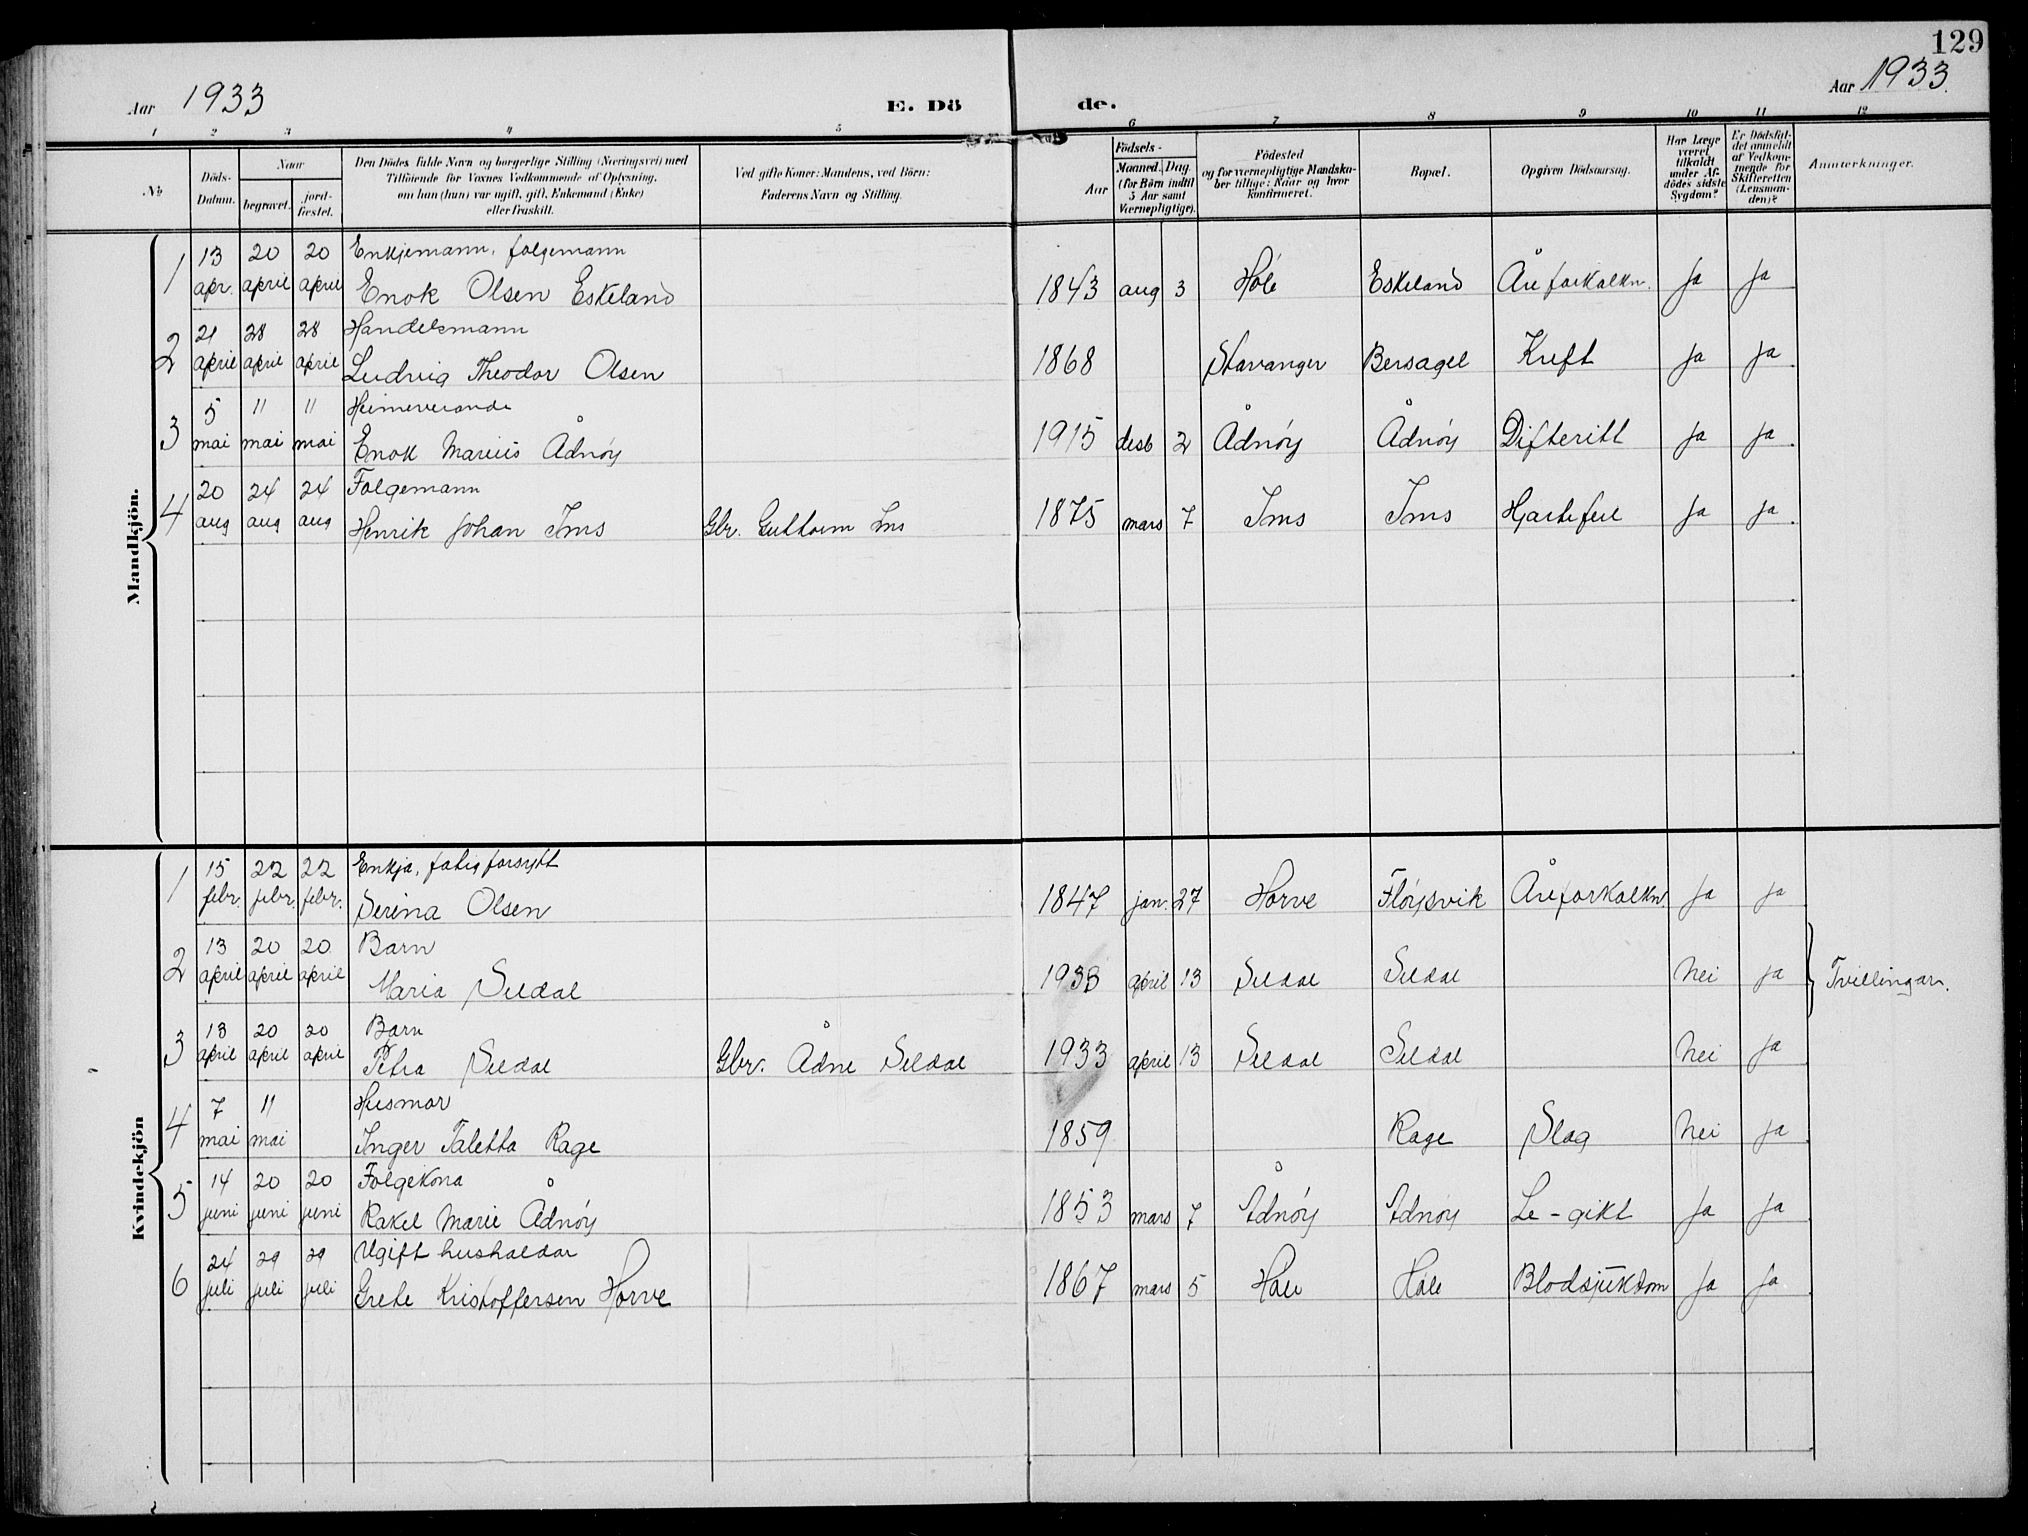 129
Aar 1933
E. Dö de.
Aar 1933.
1 2 3 4 5 6 7 8 9 10 11 12
No
Döds-Datum.
Naar
begravet.
jord-fæstet.
Den Dödes fulde Navn og borgerlige Stilling (Næringsvei) med
Tilföiende for Voxnes Vedkommende af Oplysning,
om han (hun) var ugift, gift, Enkemand (Enke)
eller fraskilt.
Ved gifte Koner: Mandens, ved Börn:
Faderens Navn og Stilling.
Födsels-
Aar
Maaned. Dag
(for Börn indtil
5 Aar samt
Værnepligtige).
Födested
og for værnepligtige Mandska-
ber tillige: Naar og hvor
konfirmeret.
Bopæl.
Opgiven Dödsaarsag.
Har Læge
været
tilkaldt
under Af-
dödes sidste
Sygdom?
Er Dödsfal-
det anmeldt
af Vedkom-
mende for
Skifteretten
(Lensman-
den)?
Anmærkninger.
Mandkjön.
1 13 apr. 20 april 20 april Enkjemann, folgemann
Enok Olsen Eskeland 1843 aug 3 Hole Eskeland Åreforkalkn. Ja Ja
2 21 april 28 april 28 april Handelsmann
Ludvig Theodor Olsen 1868 Stavanger Bersagel Kreft Ja Ja
3 5 mai 11 mai 11 mai Heimeverande
Enok Marius Ådnøy 1915 desb 2 Ådnøy Ådnøy Difteritt Ja Ja
4 20 aug 24 aug 24 aug Folgemann
Henrik Johan Ims Gbr. Guttorm Ims 1875 mars 7 Ims Ims Hjartefeil Ja Ja
Kvindekjön
1 15 febr. 22 febr. 22 febr. Enkja, fatigforsytt
Serina Olsen 1847 jan. 27 Horve Fløysvik Åreforkalkn. Ja Ja
2 13 april 20 april 20 april Barn
Maria Seldal 1933 april 13 Seldal Seldal Nei Ja Tvillingar.
3 13 april 20 april 20 april Barn
Petra Seldal Gbr. Ådne Seldal 1933 april 13 Seldal Seldal Nei Ja
4 7 mai 11 mai Husmor
Inger Taletta Rage 1859 Rage Slag Nei Ja
5 14 juni 20 juni 20 juni Folgekona
Rakel Marie Ådnøy 1853 mars 7 Ådnøy Ådnøy Le-gikt Ja Ja
6 24 juli 29 juli 29 juli Ugift hushaldar
Grete Kristoffersen Horve 1867 mars 5 Hole Hole Blodsjukdom Ja Ja